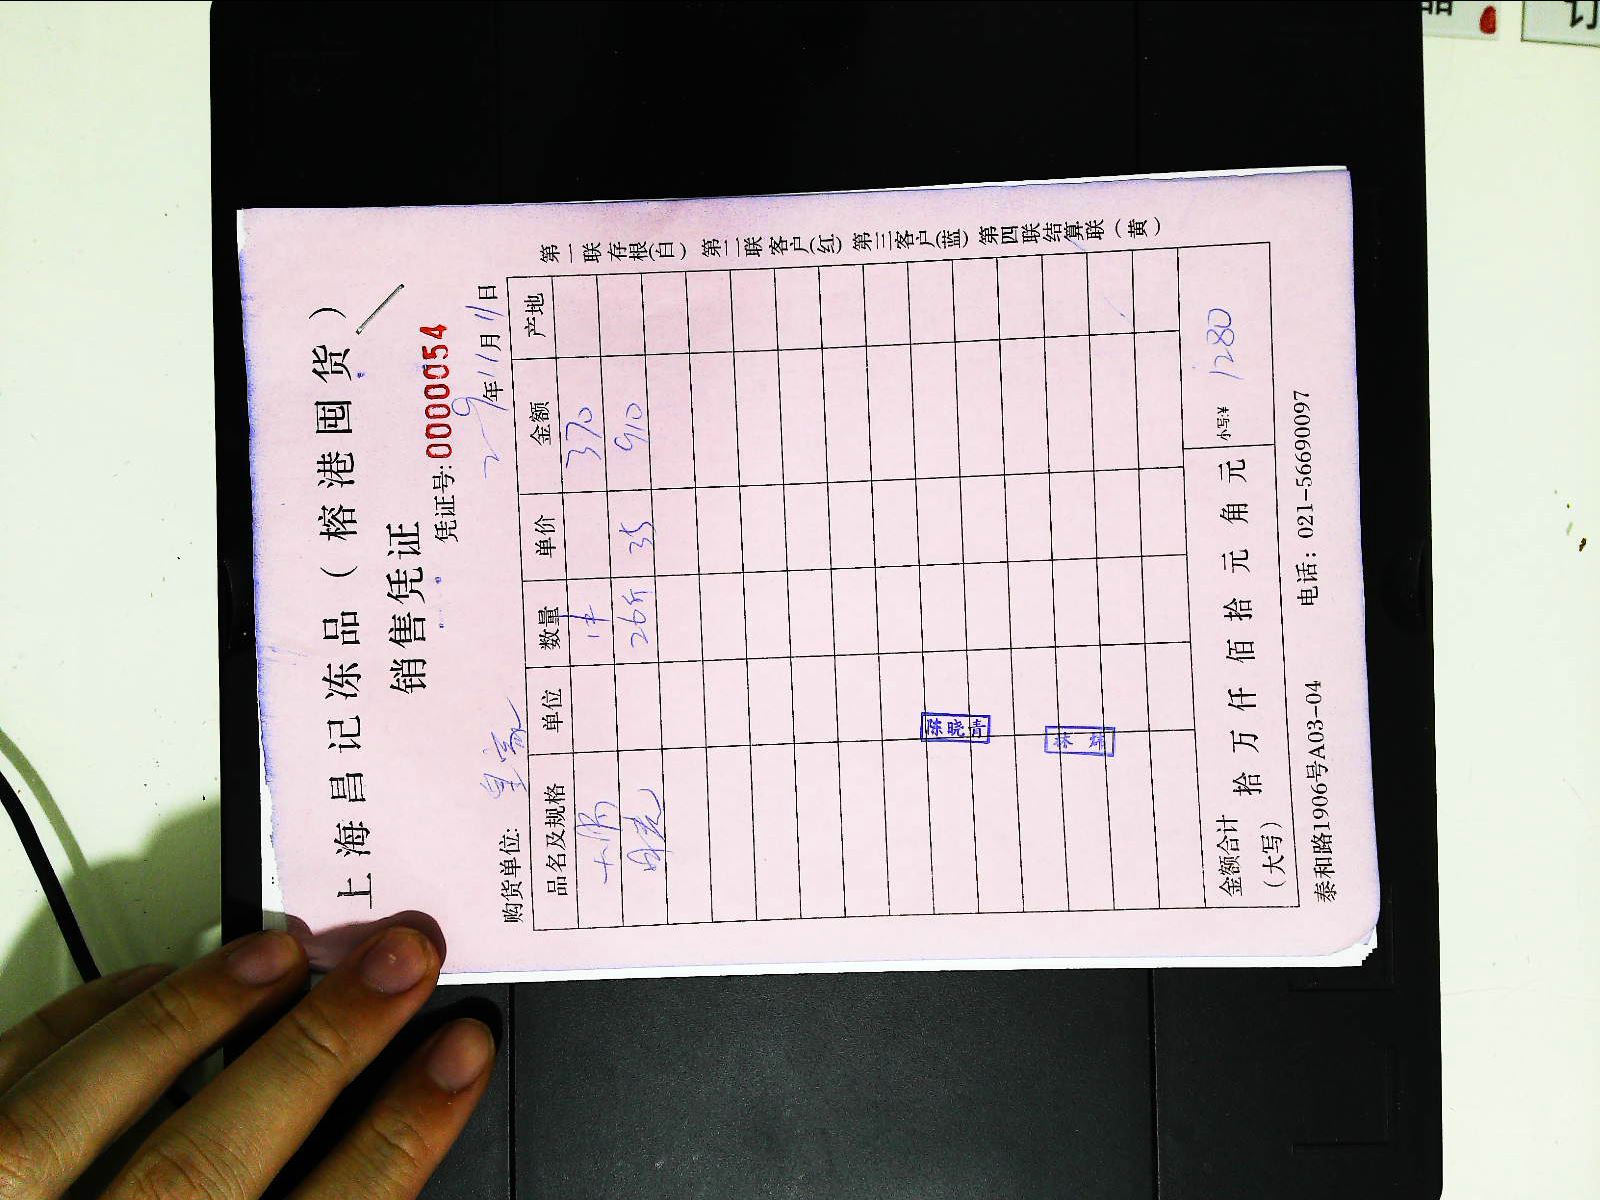 上海昌记冻品（榕港囤货）
销售凭证
凭证号:0000054
购货单位: 皇家
年11月11日
品名及规格 单位 数量 单价 金额 产地
大 1件 370
26斤 35 910
金额合计（大写） 拾 万 仟 佰 拾 元 角 元 小写:¥ 1280
泰和路1906号A03-04 电话：021-56690097
第一联存根(白) 第二联客户(红) 第三客户(蓝) 第四联结算联（黄）
晓青
林
品
订